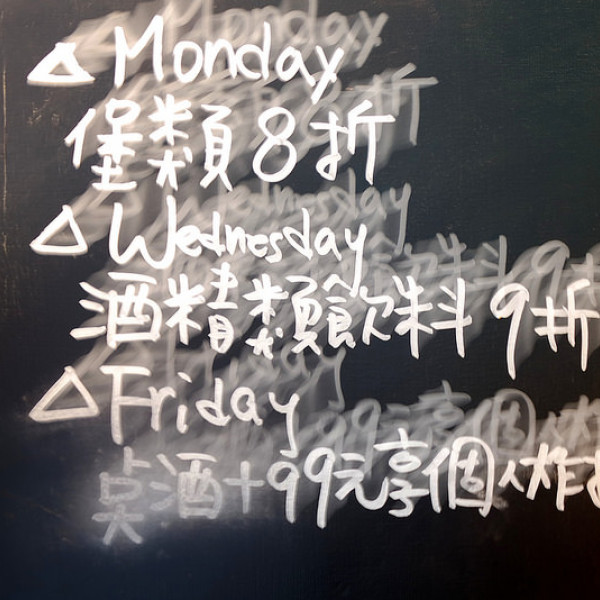 △ Monday
堡類 8 折
△ Wednesday
酒精類飲料 9 折
△ Friday
桌酒+99元享個人炸